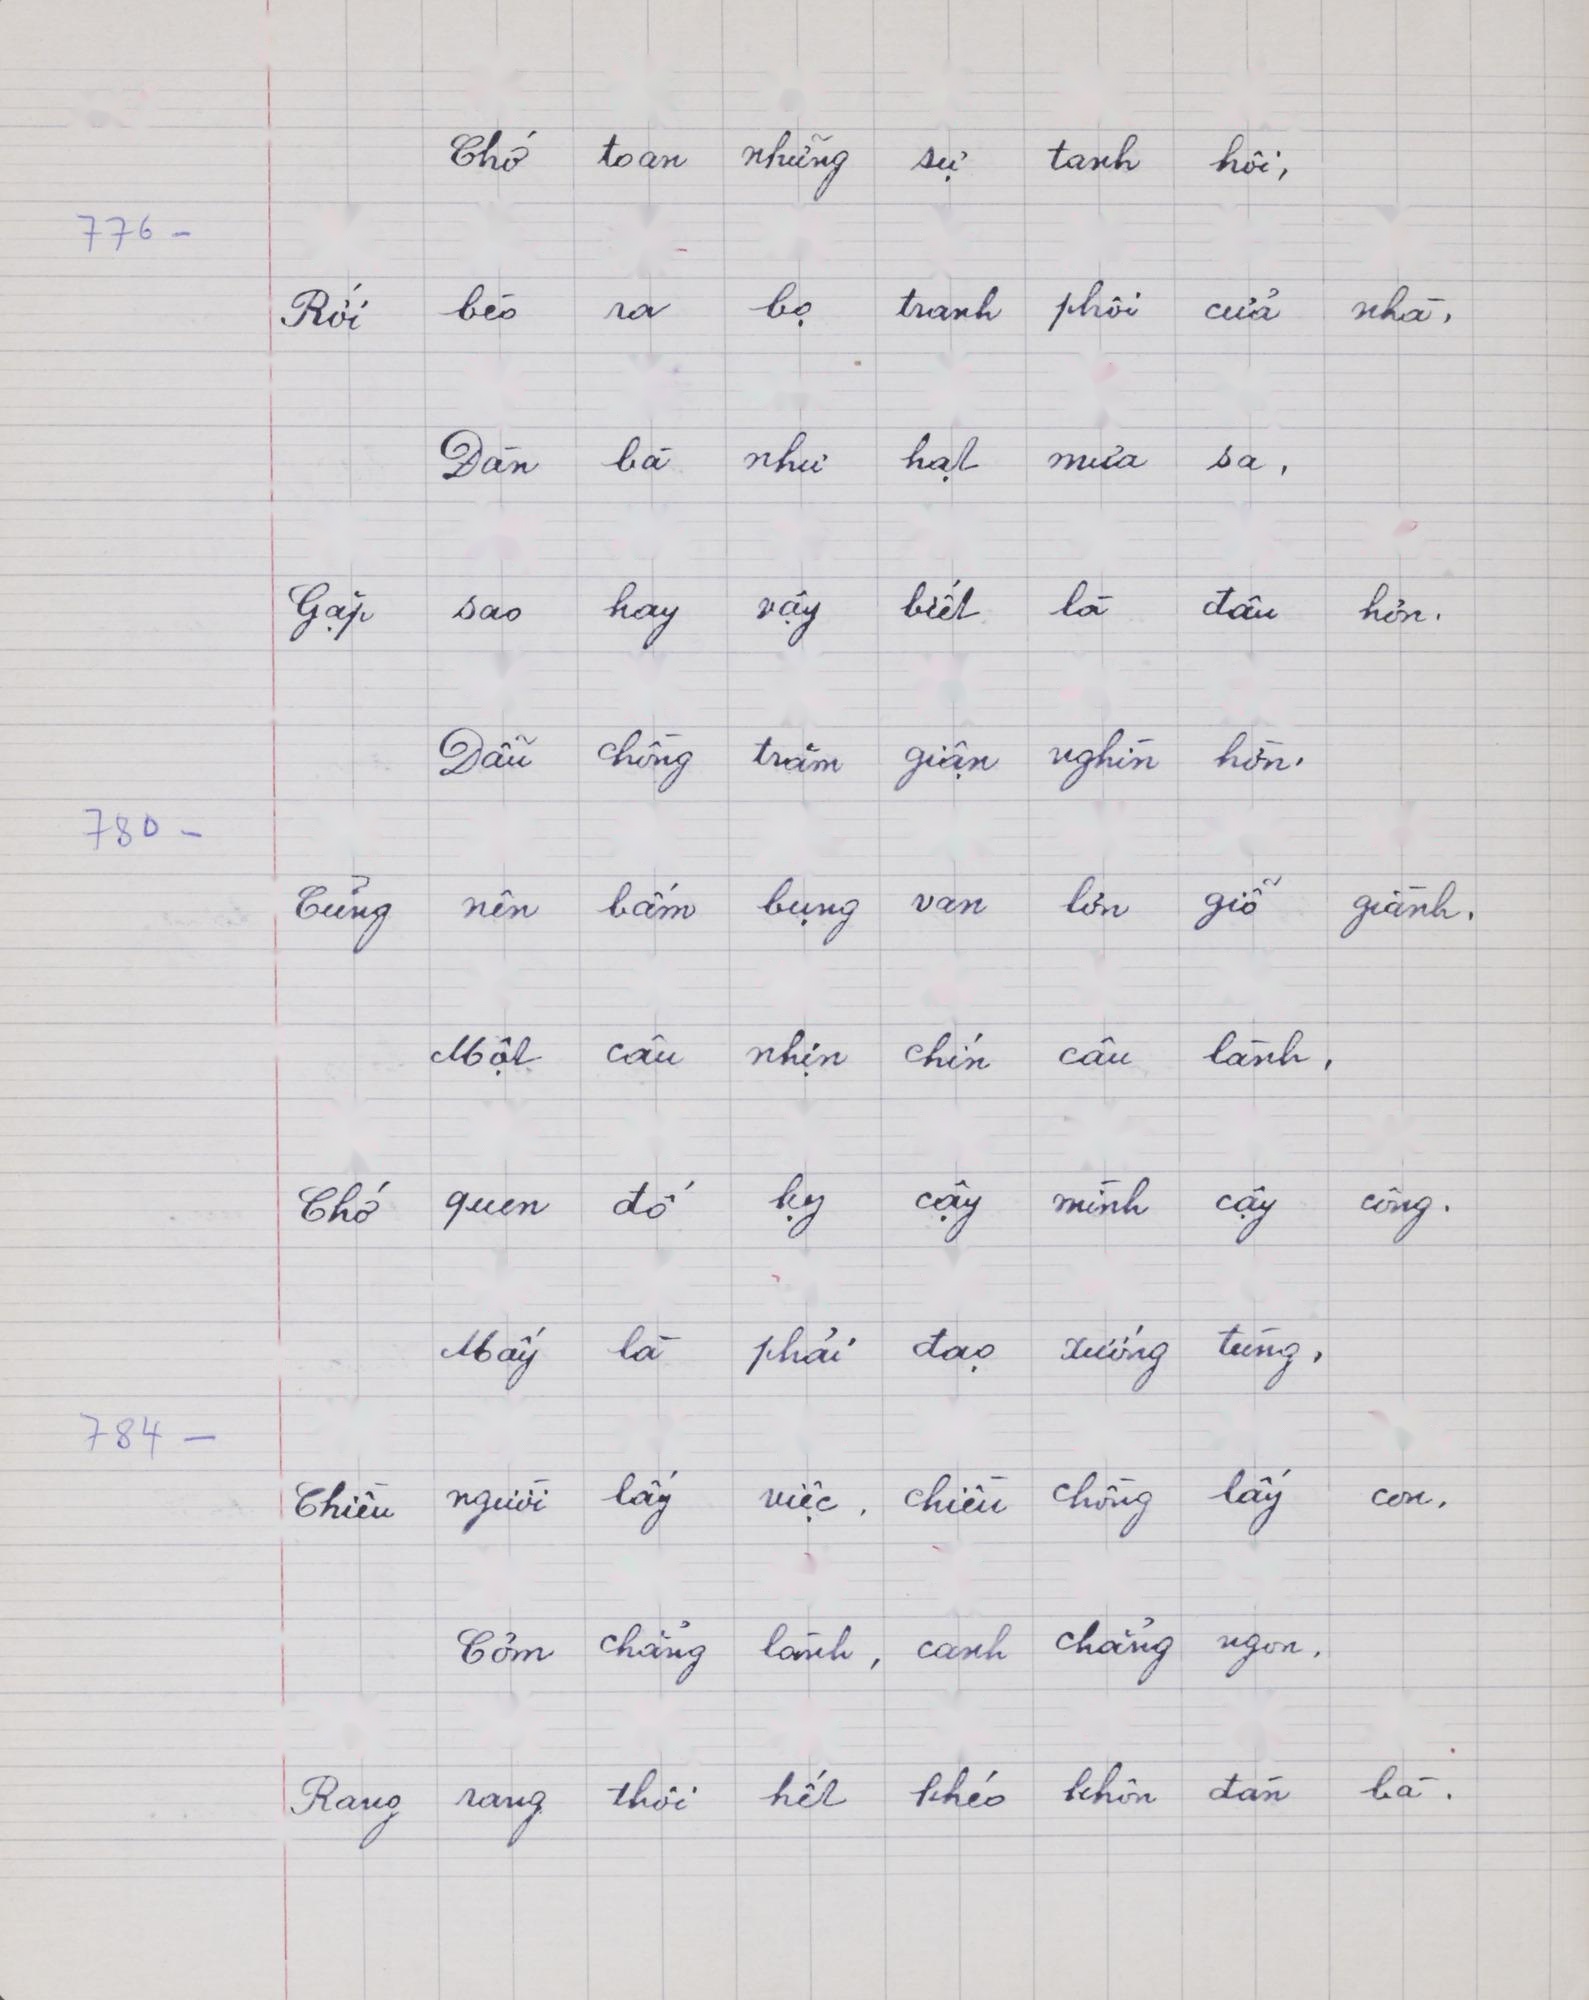 Chớ toan những sự tanh hôi,
776 -
Rồi bèo ra bọ tranh phôi cửa nhà.
Đàn bà như hạt mưa sa,
Gặp sao hay vậy biết là đâu hơn.
Dẫu chồng trăm giận nghìn hờn.
780 -
Cũng nên bấm bụng van lơn giỗ giành.
Một câu nhịn chín câu lành,
Chớ quen đố kỵ cậy mình cậy công.
Mấy là phải đạo xướng tùng,
784 -
Chiều người lấy việc, chiều chồng lấy con.
Cơm chẳng lành, canh chẳng ngon,
Rang rang thôi hết khéo khôn đàn bà.